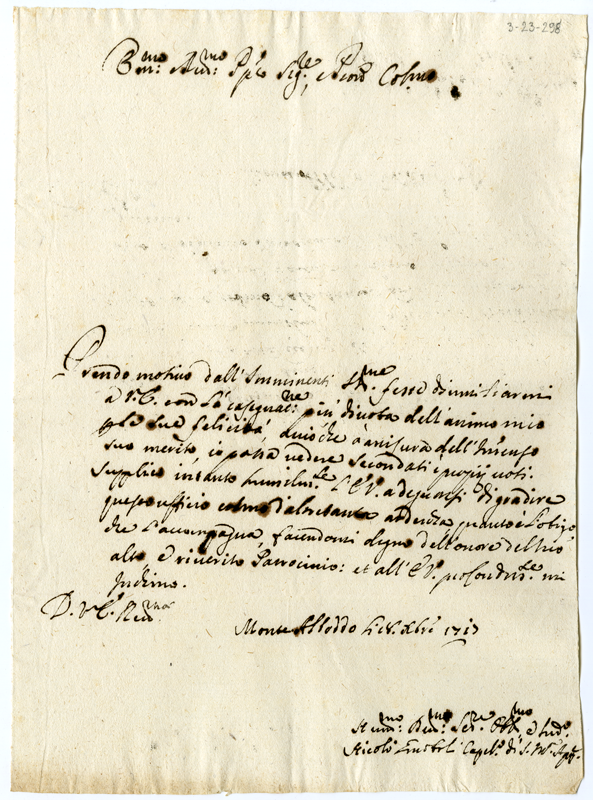 3-23-298
Em:mo Rev:mo Sig:re Pron Colmo
Prendo motivo dall'Imminenti SS.me feste di umiliarmi
à V.E. con la più divota dell'animo mio
le sue felicità, à misura dell'Immenso
suo merito, io possa vedere secondati i proprij voti.
Supplico intanto humilm.te l'E.V. a degnarsi di gradire
questo ufficio colmo d'altrettanta ardenza, quanto è l'obligo
che l'accompagna, facendomi degno dell'onore del suo
alto e riverito Patrocinio: et all'E.V. profondam.te mi
Inchino.
D. V. E. Rev.ma
Monte Xbre 1717
Hum:mo Dev:mo Ser.re Obb.mo
Nicolò di S.